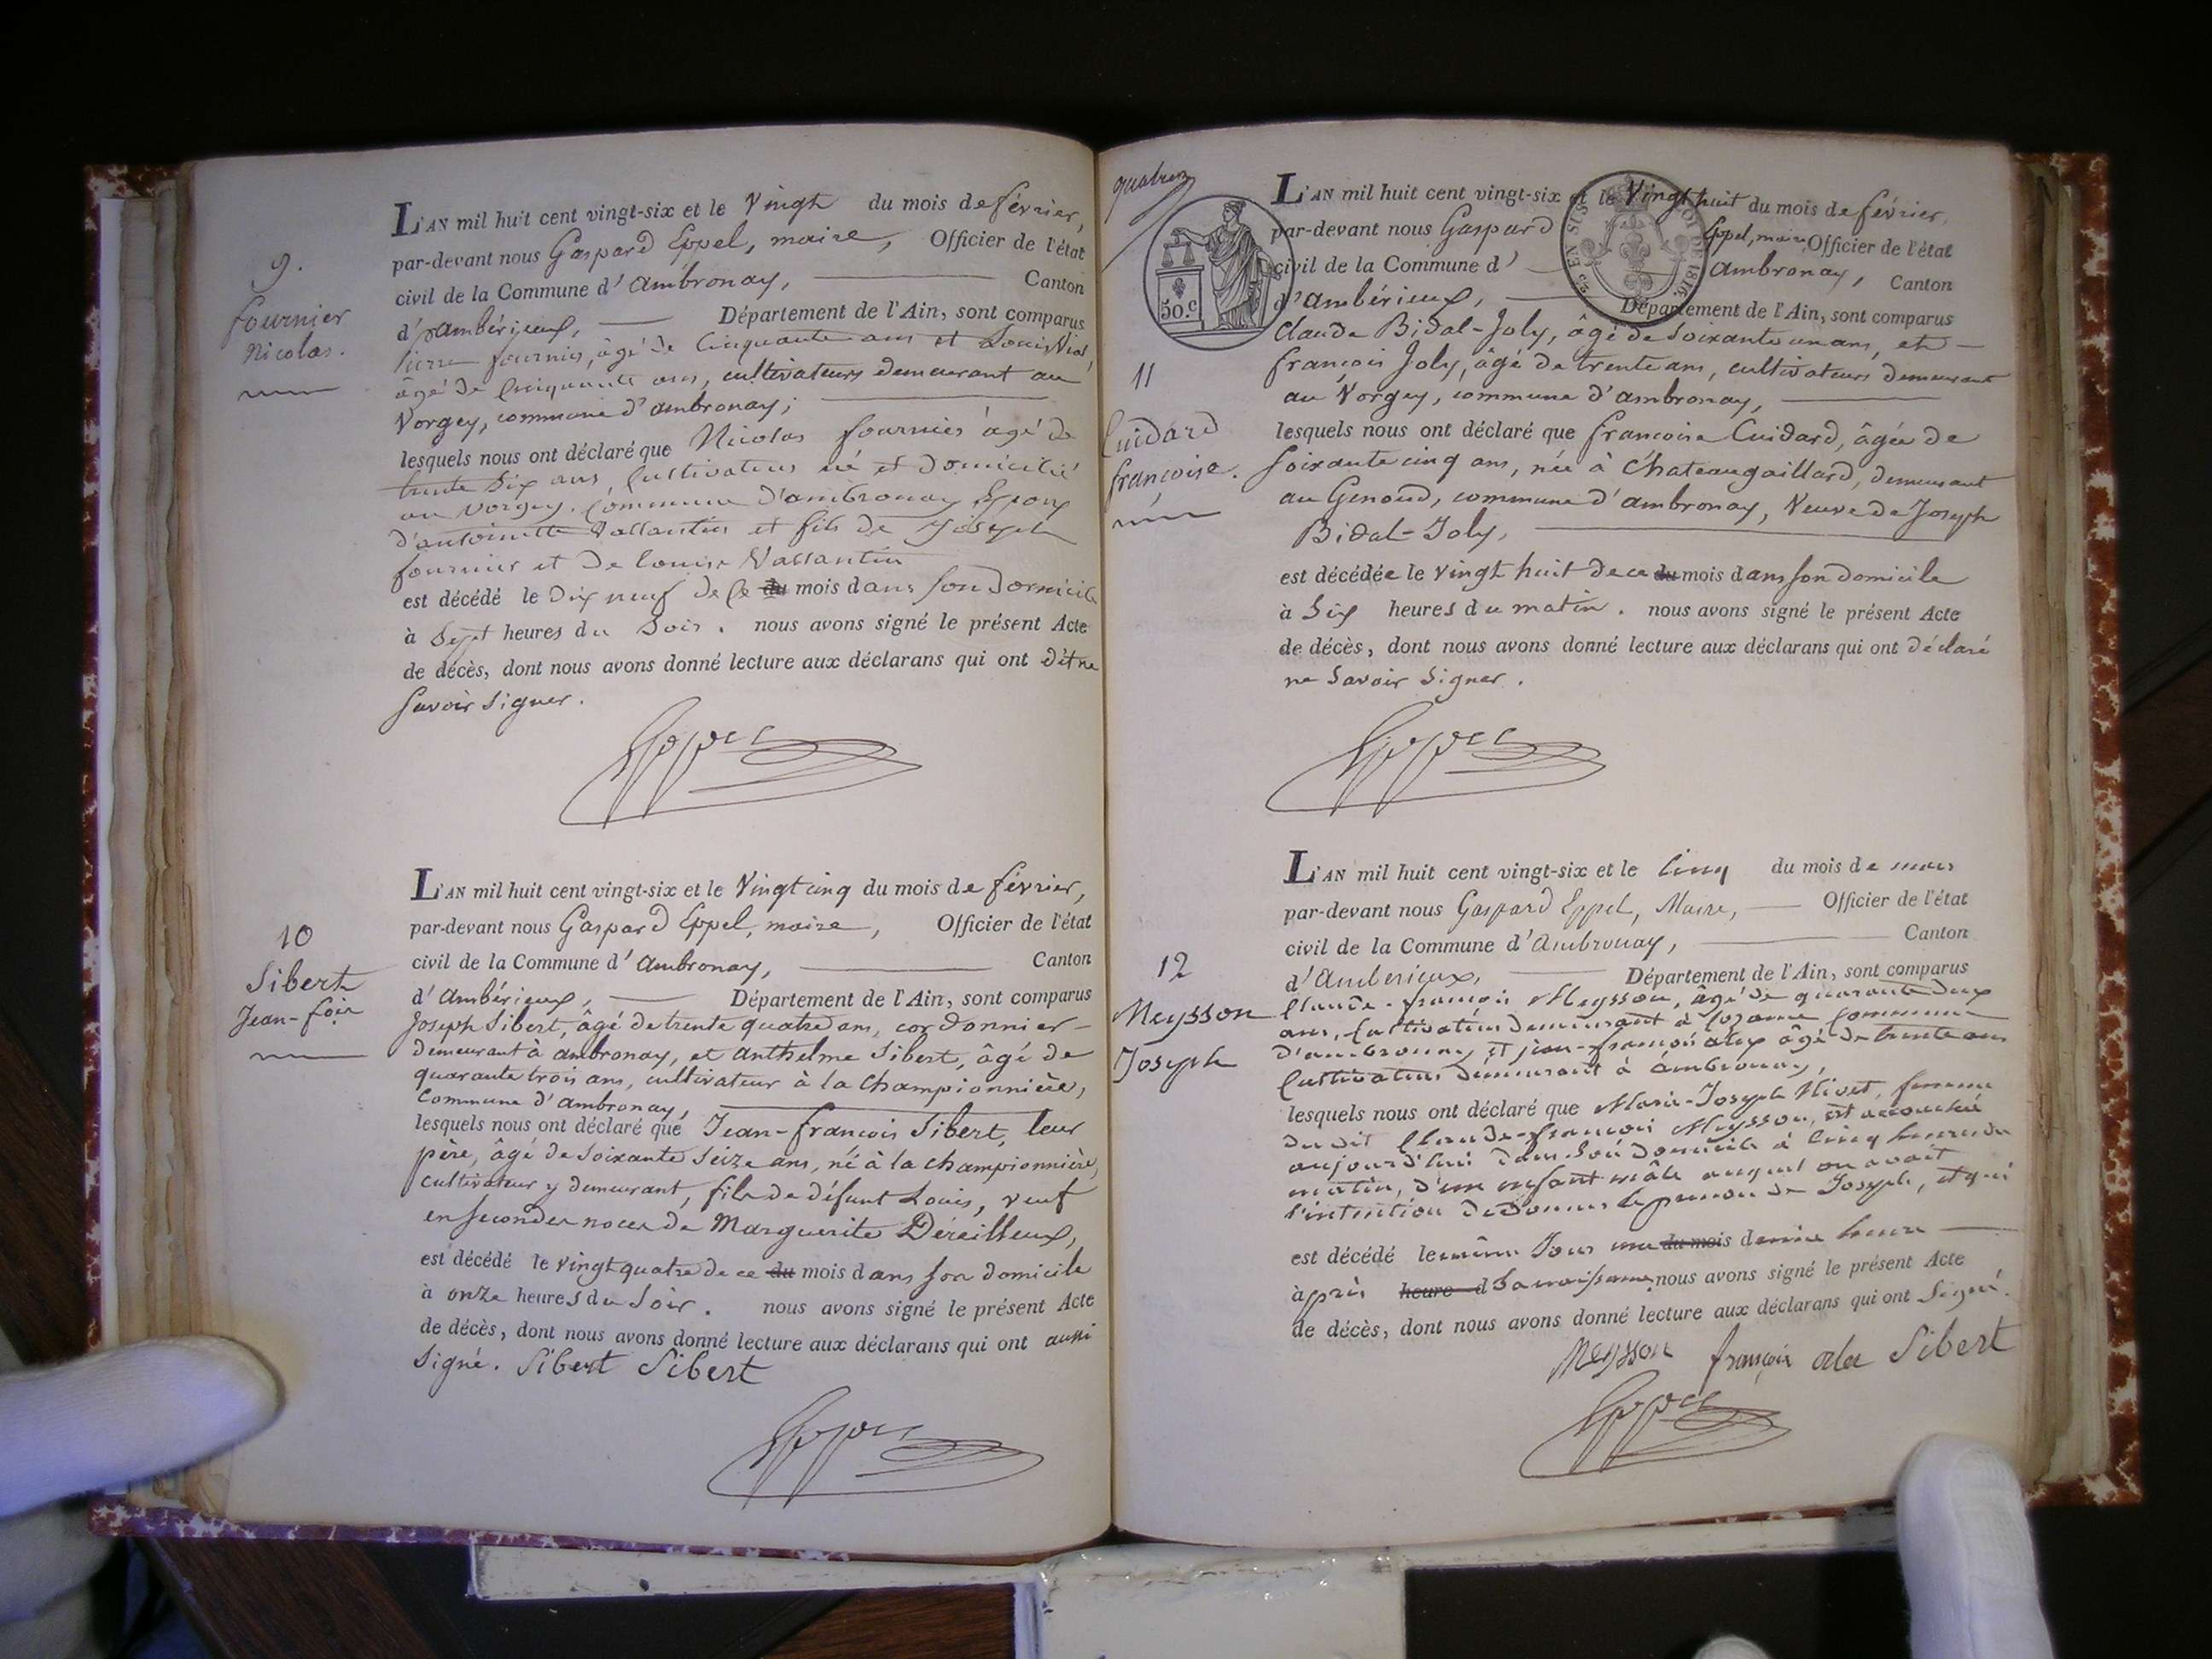 9.
fournier
Nicolas.
L'AN mil huit cent vingt-six et le Vingt du mois de février,
par-devant nous Gaspard Eppel, maire, Officier de l'état
civil de la Commune d'ambronay, Canton
d'ambérieux, Département de l'Ain, sont comparus
pierre fournier, âgé de Cinquante ans et Louis Vial,
âgé de Cinquante ans, cultivateurs demeurant au
Vorgey, commune d'ambronay;
lesquels nous ont déclaré que Nicolas fournier âgé de
trente six ans, Cultivateur né et domicilié
au vorgey. Commune d'ambronay Epoux
d'antoinette Vallantin et fils de Joseph
fournier et de louise Vallantin
est décédé le dix neuf de Ce du mois dans son domicile
à Sept heures du Soir. nous avons signé le présent Acte
de décès, dont nous avons donné lecture aux déclarans qui ont dit ne
savoir signer.
Eppel
10
Sibert
Jean-fois
L'AN mil huit cent vingt-six et le Vingt cinq du mois de février,
par-devant nous Gaspard Eppel, maire, Officier de l'état
civil de la Commune d'ambronay, Canton
d'ambérieux, Département de l'Ain, sont comparus
Joseph Sibert, âgé de trente quatre ans, cordonnier
demeurant à ambronay, et anthelme Sibert, âgé de
quarante trois ans, cultivateur à la championnière,
Commune d'ambronay,
lesquels nous ont déclaré que Jean-francois Sibert, leur
père, âgé de soixante seize ans, né à la championnière,
cultivateur y demeurant, fils de défunt Louis, veuf
en secondes noces de Marguerite Déreilleux,
est décédé le vingt quatre de ce du mois dans son domicile
à onze heures du soir. nous avons signé le présent Acte
de décès, dont nous avons donné lecture aux déclarans qui ont aussi
signé. Sibert Sibert
Eppel
50.c
11
Cuidard
françoise.
L'AN mil huit cent vingt-six et le Vingt huit du mois de février,
par-devant nous Gaspard Eppel, maire Officier de l'état
civil de la Commune d' ambronay, Canton
d'ambérieux, Département de l'Ain, sont comparus
Claude Bidal-Joly, âgé de soixante un ans, et
françois Joly, âgé de trente ans, cultivateurs demeurant
au Vorgey, commune d'ambronay,
lesquels nous ont déclaré que francoise Cuidard, âgée de
soixante cinq ans, née à Chateaugaillard, demeurant
au Genoud, commune d'ambronay, Veuve de Joseph
Bidal-Joly,
est décédée le vingt huit de ce du mois dans son domicile
à Six heures du matin. nous avons signé le présent Acte
de décès, dont nous avons donné lecture aux déclarans qui ont déclaré
ne savoir signer.
Eppel
12
Meysson
Joseph
L'AN mil huit cent vingt-six et le Cinq du mois de mars
par-devant nous Gaspard Eppel, Maire, Officier de l'état
civil de la Commune d'Ambronay, Canton
d'Amberieux, Département de l'Ain, sont comparus
Claude-françois Meysson, âgé de quarante deux
ans, Cultivateur demeurant à Cozance Commune
d'ambronay et jean-françois alex âgé de trente ans
Cultivateur demeurant à ambronay,
lesquels nous ont déclaré que Marie-Joseph Nivet, femme
du dit Claude-francois Meysson, est accouchée
aujourd'hui dans son domicile à Cinq heures du
matin, d'un enfant mâle auquel on avait
l'intention de donner le prenom de Joseph, et qui
est décédé le même Jour une du mois demie heure
après heure d sa naissance, nous avons signé le présent Acte
de décès, dont nous avons donné lecture aux déclarans qui ont Signé.
Meysson françois alex Sibert
Eppel